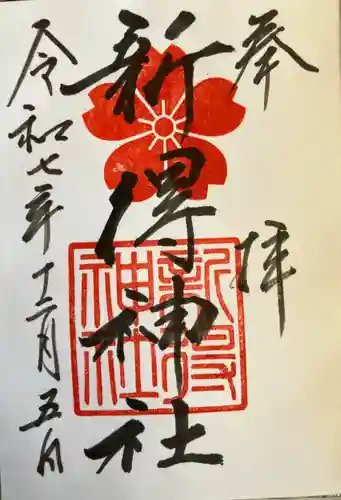 奉拝
新得神社
新得神社
令和七年十二月五日